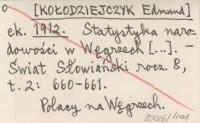 [KOŁODZIEJCZYK Edmund]
ek. 1912. Statystyka naro-
dowości w Węgrzech [...]. -
Świat Słowiański rocz. 8,
t. 2: 660-661.
Polacy na Węgrzech.